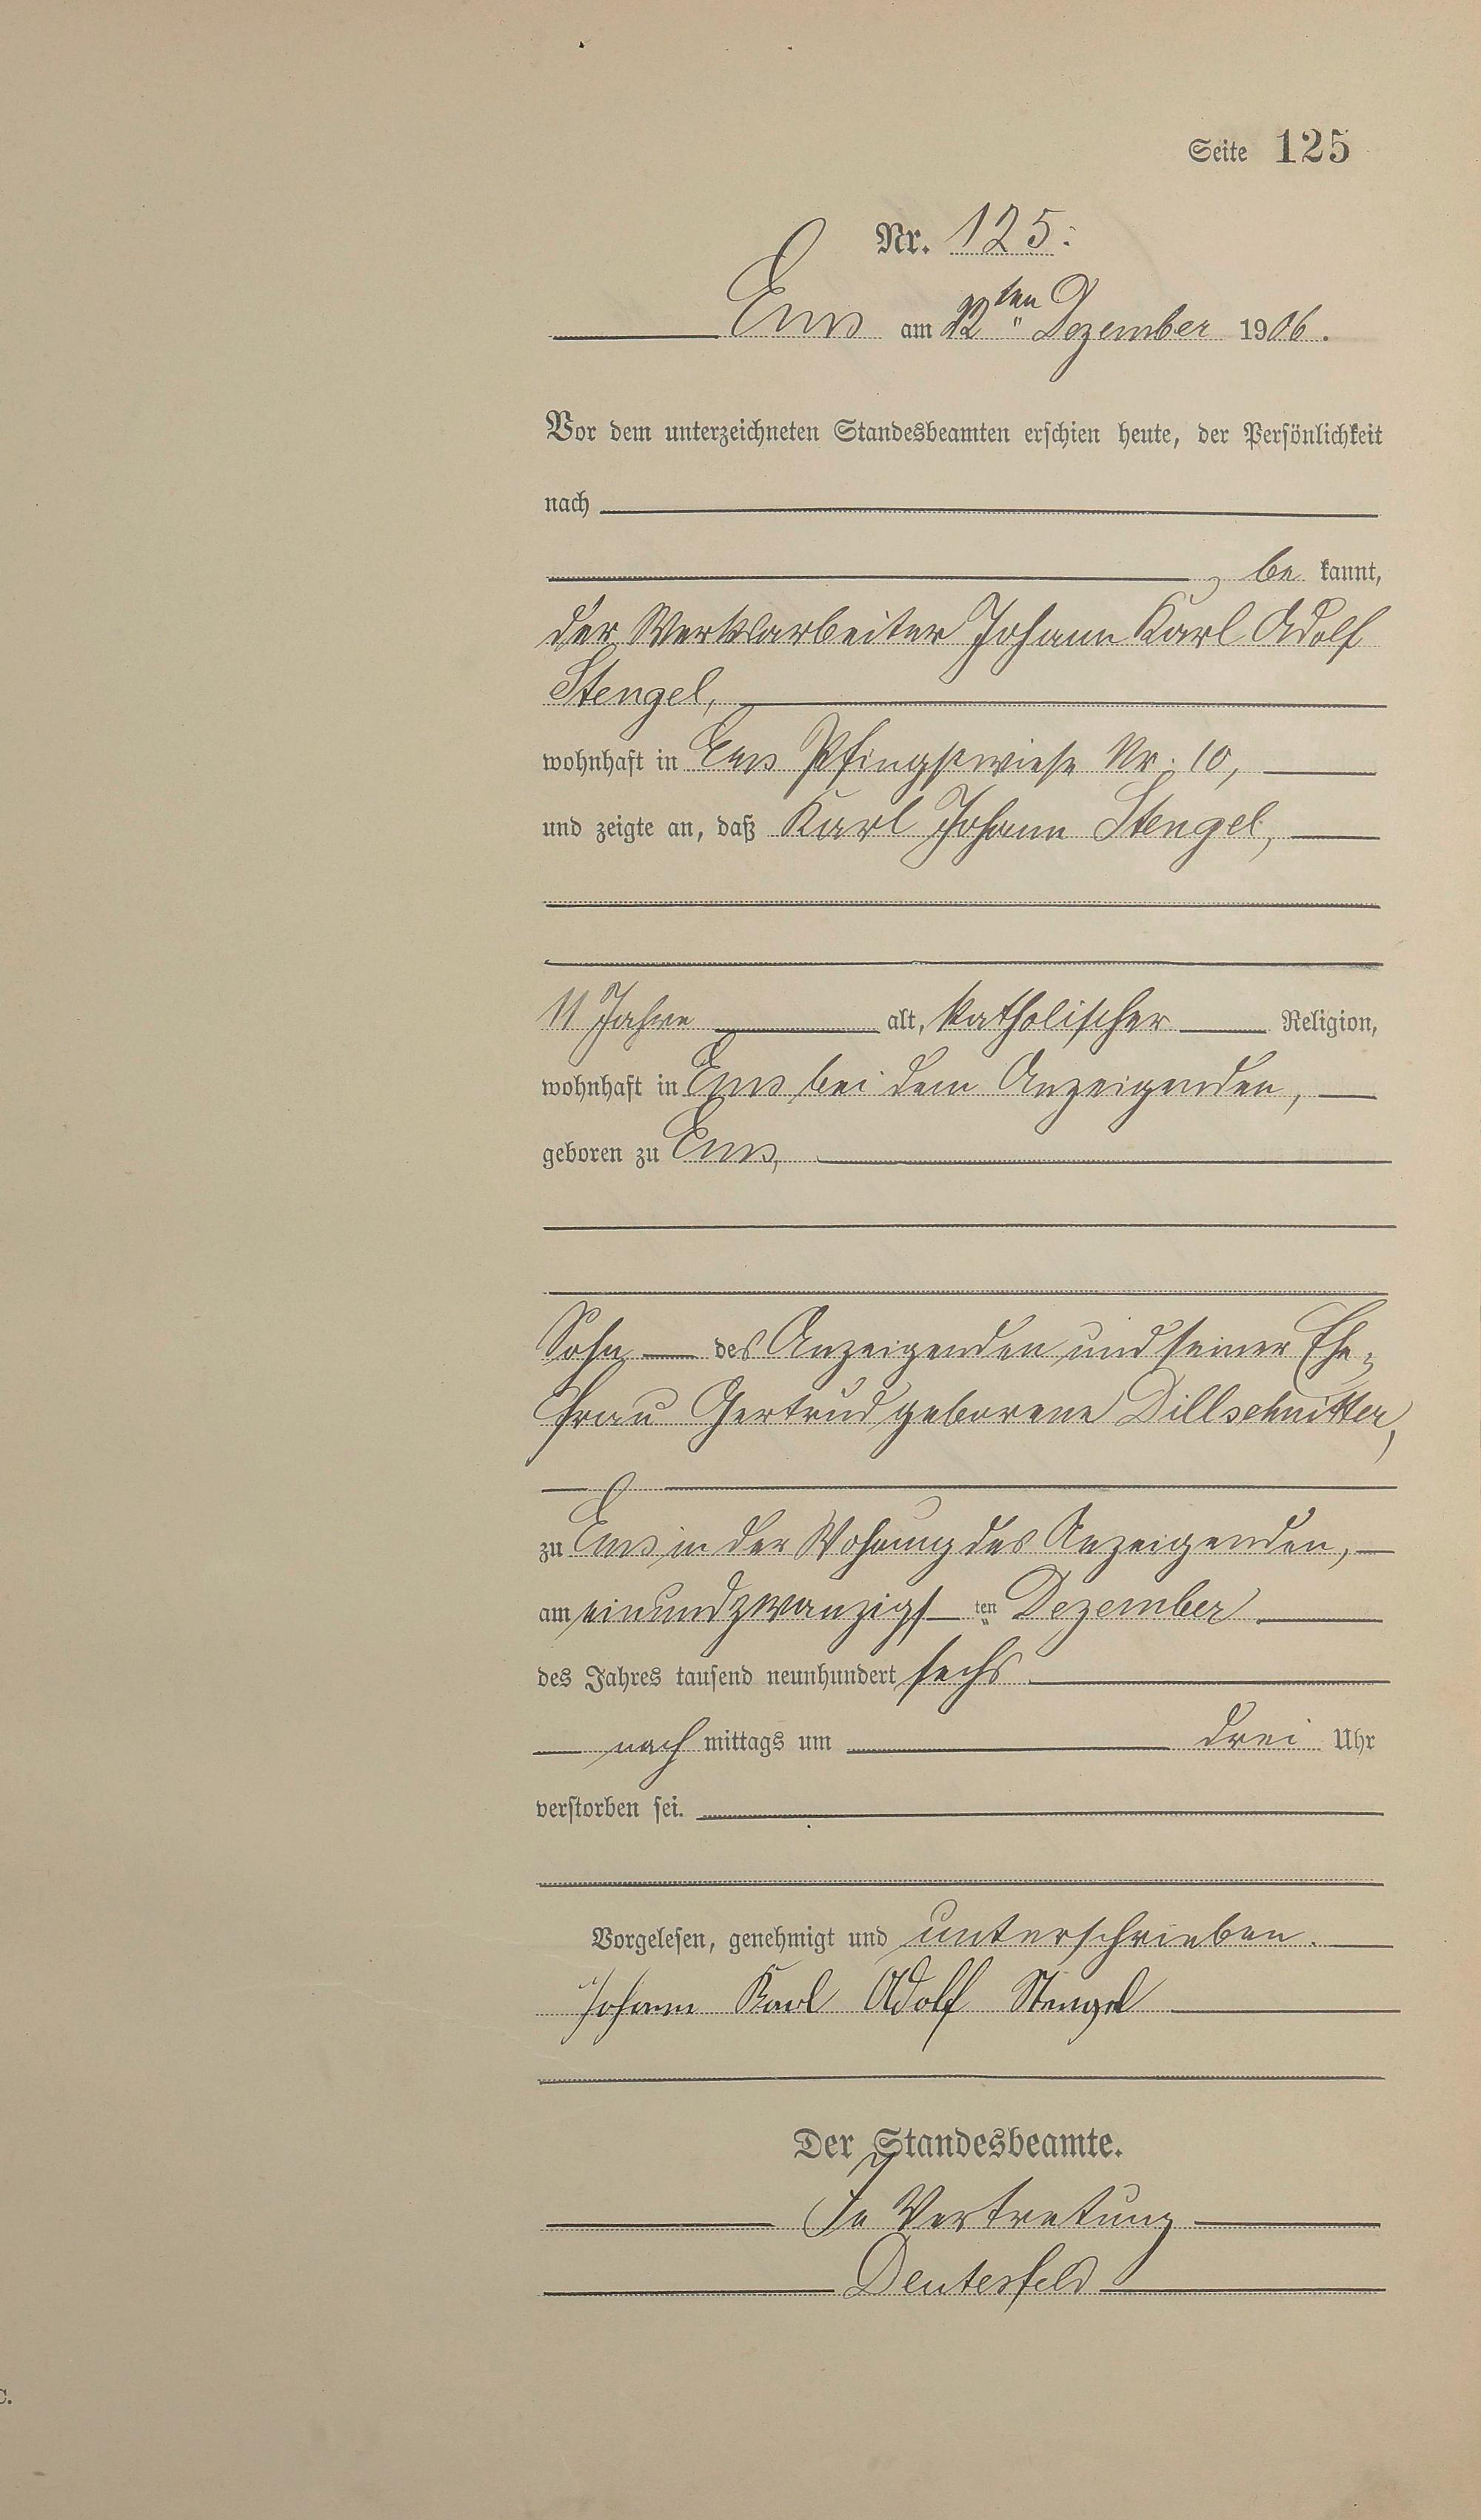 Seite 125
Nr. 125.
Ems am 22ten Dezember 1906.
Vor dem unterzeichneten Standesbeamten erschien heute, der Persönlichkeit
nach
be kannt,
der Werksarbeiter Johann Karl Adolf
Stengel,
wohnhaft in Ems Pfingstwiese Nr. 10,
und zeigte an, daß Karl Johann Stengel,
11 Jahre alt, katholischer Religion,
wohnhaft in Ems bei dem Anzeigenden,
geboren zu Ems,
Sohn des Anzeigenden und seiner Ehe-
frau Gertrud geborene Dillschnitter,
zu Ems in der Wohnung des Anzeigenden,
am einundzwanzigsten Dezember
des Jahres tausend neunhundert sechs
nach mittags um drei Uhr
verstorben sei.
Vorgelesen, genehmigt und unterschrieben.
Johann Karl Adolf Stengel
Der Standesbeamte.
In Vertretung
Deutesfeld
C.